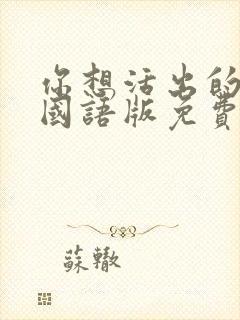 你想活出的
國語版免費
蘇轍